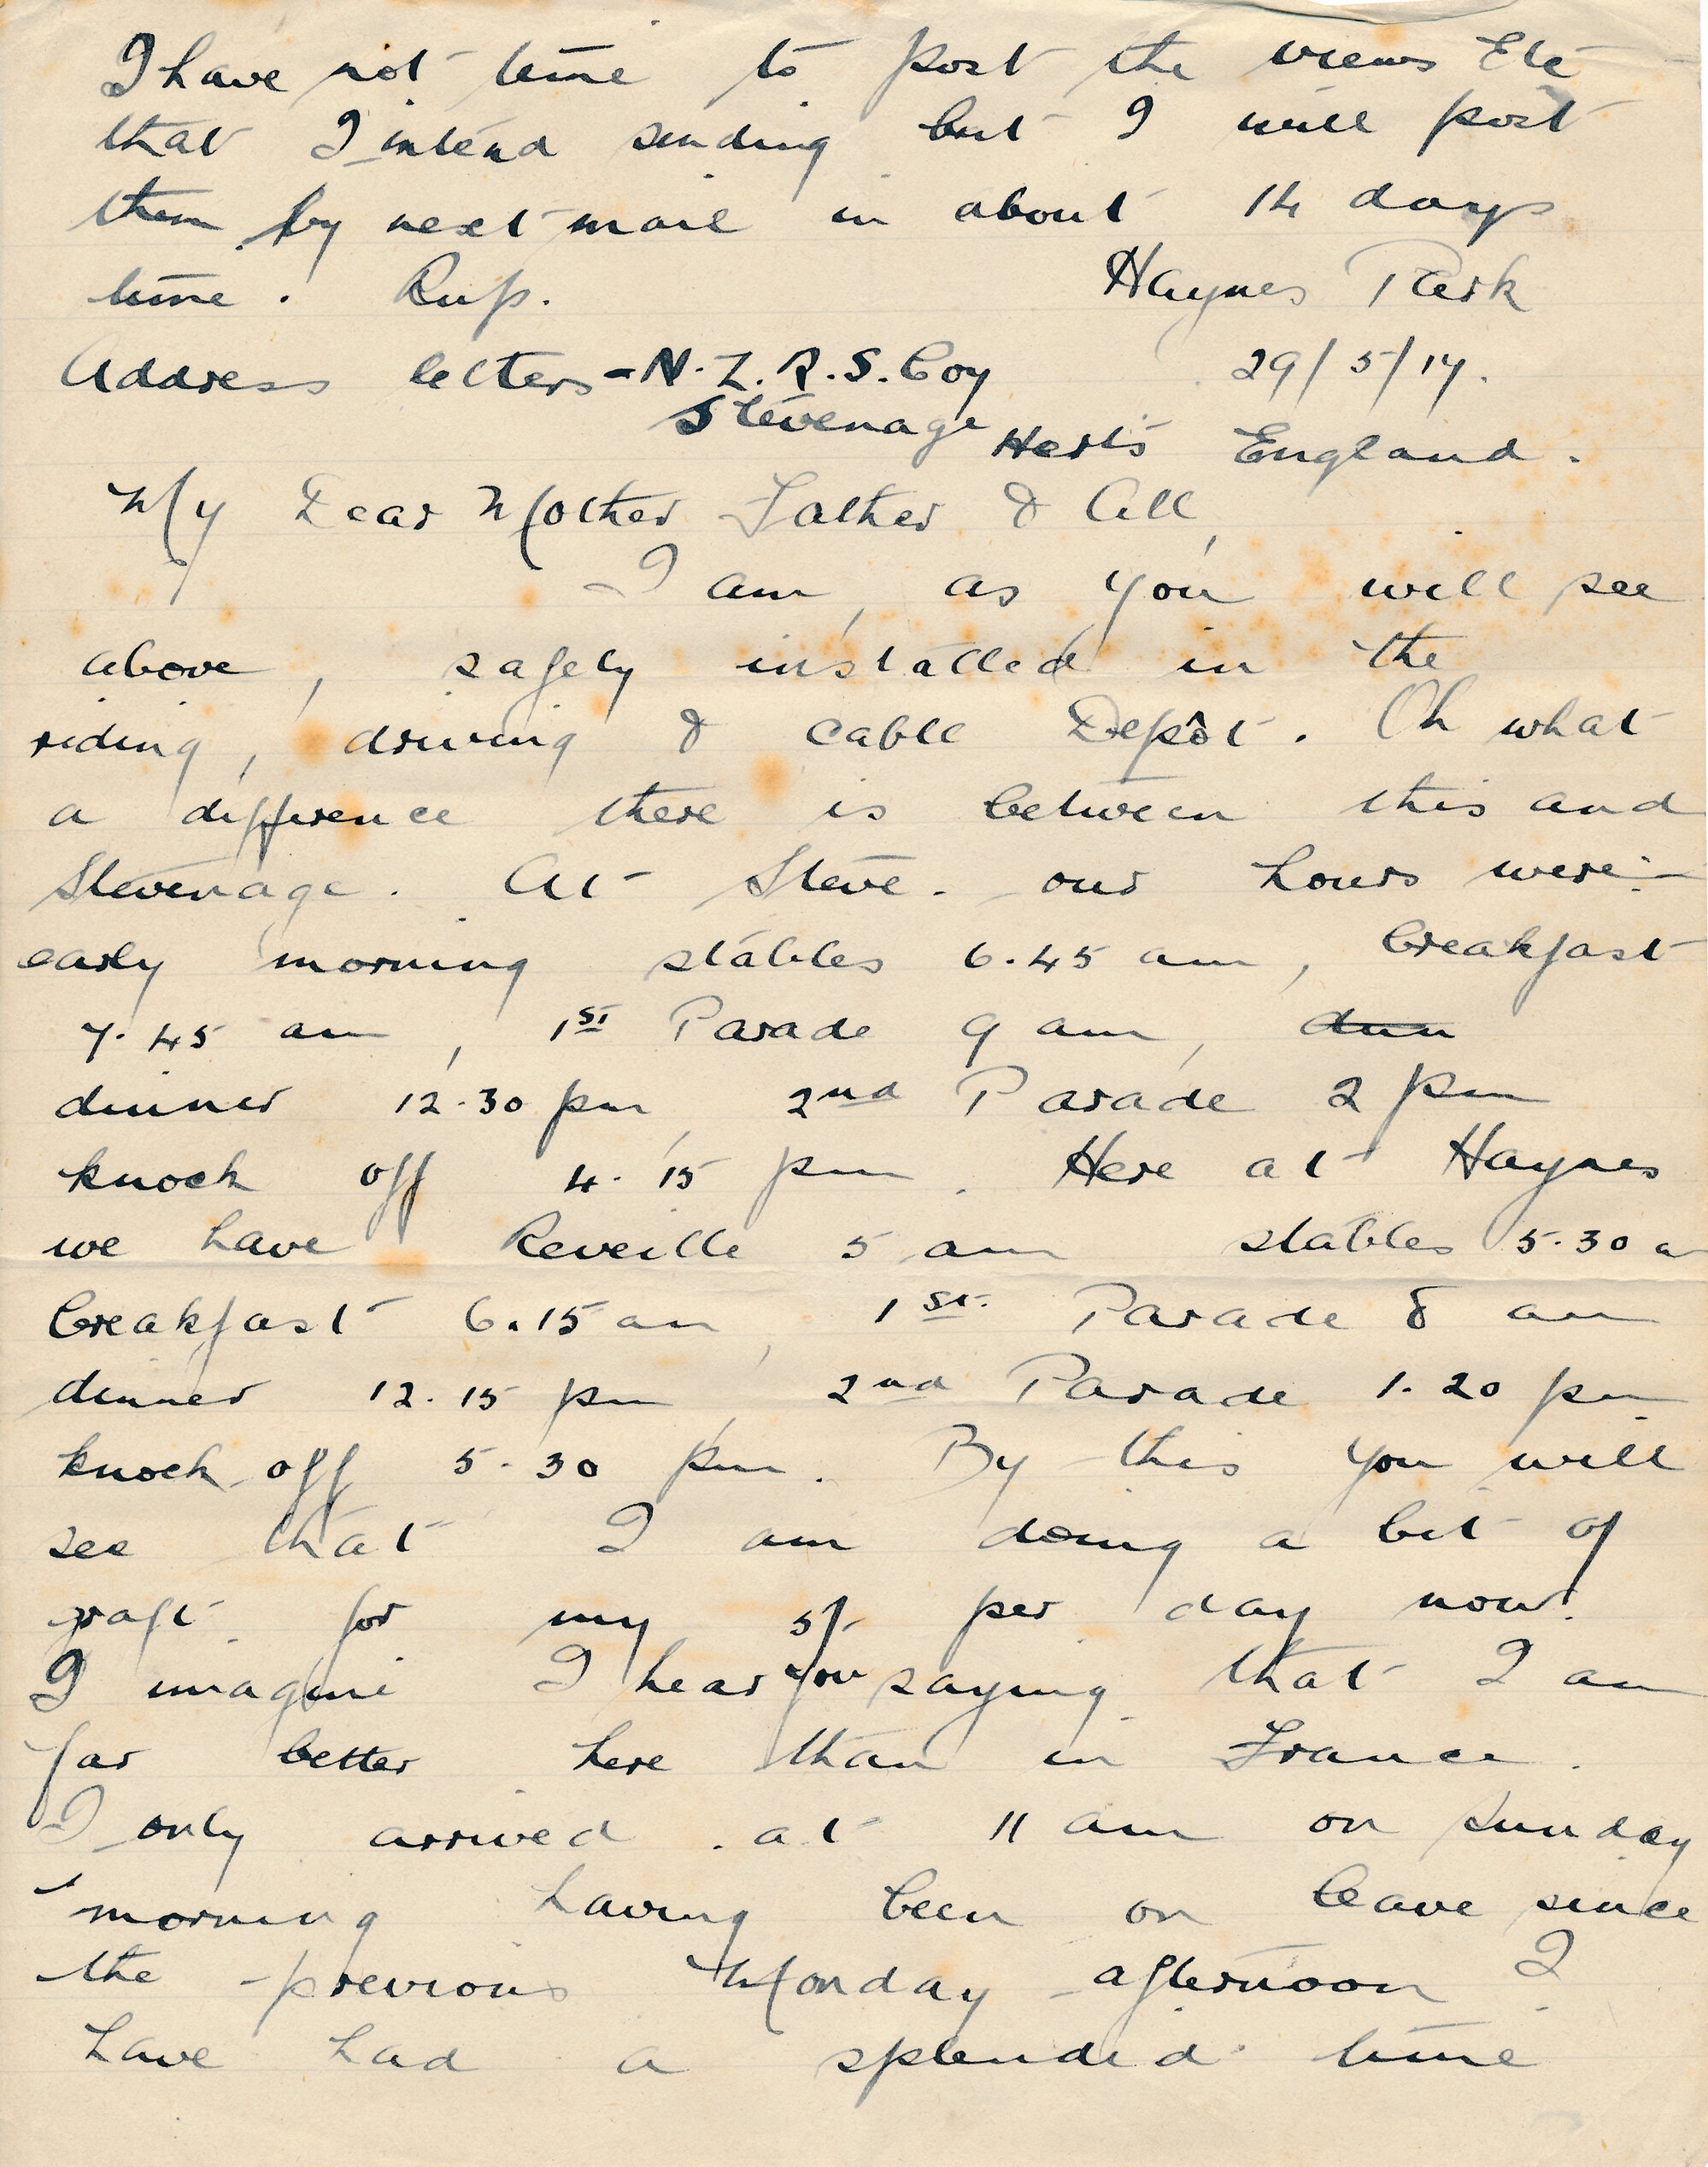 I have not time to post the views Etc
that I intend sending but I will post
them by next mail in about 14 days
time. Rup.
Haynes Park
Address letters - N.Z.R.S. Coy
29/5/17.
Stevenage Herts England.
My Dear Mother Father & All,
I am, as you will see
above, safely installed in the
riding, driving & cable Depôt. Oh what
a difference there is between this and
Stevenage. At Steve. our hours were:-
early morning stables 6.45 am, breakfast
7.45 am, 1st Parade 9 am, dinn
dinner 12.30 pm, 2nd Parade 2 pm
knock off 4.15 pm. Here at Haynes
we have Reveille 5 am stables 5.30 a
breakfast 6.15 am, 1st Parade 8 am
dinner 12.15 pm, 2nd Parade 1.20 pm
knock off 5.30 pm. By this you will
see that I am doing a bit of
graft for my 5/- per day now.
I imagine I hear you saying that I am
far better here than in France.
I only arrived at 11 am on Sunday
morning having been on leave since
the previous Monday afternoon I
have had a splendid time